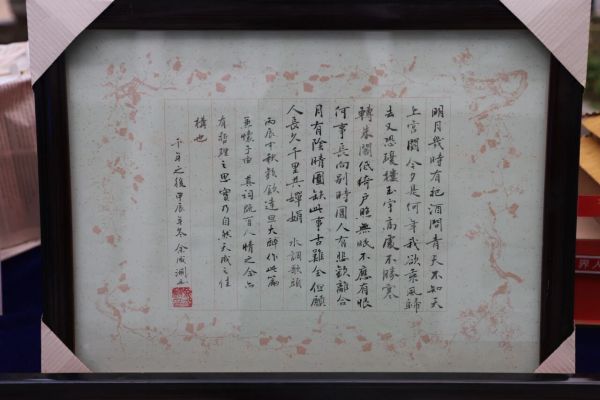 明月幾時有把酒問青天不知天
上宮闕今夕是何年我欲乘風歸
去又恐瓊樓玉宇高處不勝寒
轉朱閣低綺戶照無眠不應有恨
何事長向別時圓人有悲歡離合
月有陰晴圓缺此事古難全但願
人長久千里共嬋娟 水調歌頭
丙辰中秋歡飲達旦大醉作此篇
兼懷子由 其詞既有人情之合亦
有哲理之思實乃自然天成之佳
構也
千年之後甲辰年冬 余